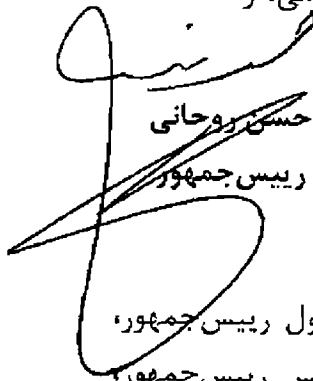 حسن روحانی
رییس‌جمهور
ول رییس‌جمهور،
رییس‌جمهور،